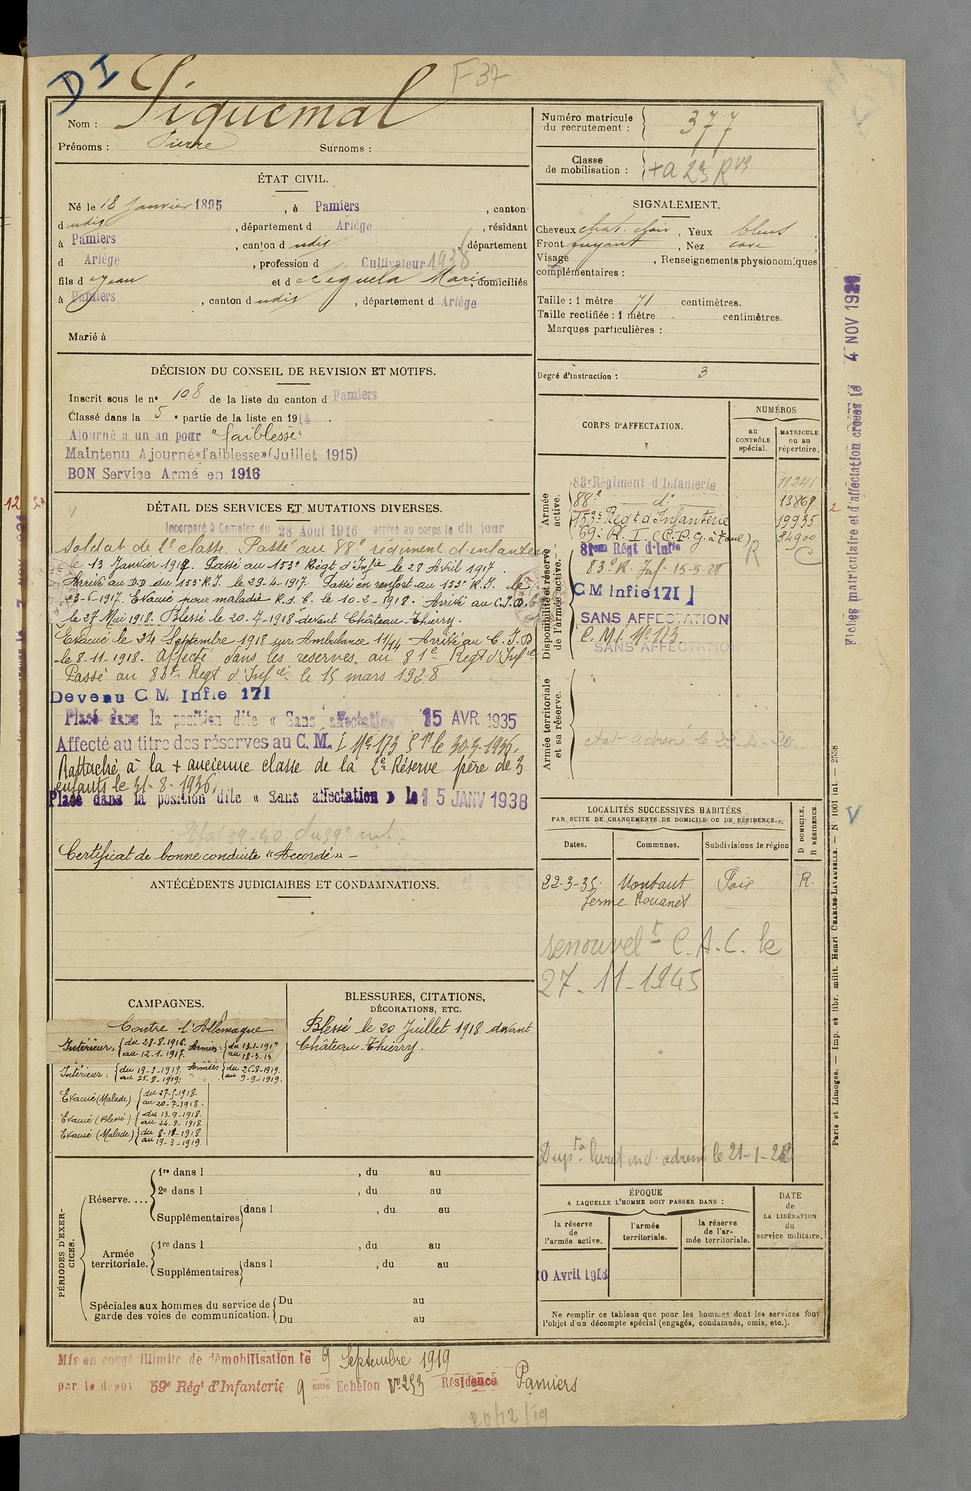 D I
F 37
Nom : Piquemal
Prénoms : Pierre Surnoms :
ÉTAT CIVIL.
Né le 18 Janvier 1895, à Pamiers, canton
d udit, département d Ariège, résidant
à Pamiers, canton d udit, département
d Ariège, profession d Cultivateur 1938
fils d Jean et d Siquela Marie, domiciliés
à Pamiers, canton d udit, département d Ariège
Marié à
DÉCISION DU CONSEIL DE REVISION ET MOTIFS.
Inscrit sous le n° 108 de la liste du canton d Pamiers
Classé dans la 5e partie de la liste en 1914.
Ajourné à un an pour "faiblesse"
Maintenu Ajourné «faiblesse» (Juillet 1915)
BON Service Armé en 1916
DÉTAIL DES SERVICES ET MUTATIONS DIVERSES.
Incorporé à Compter du 28 Aout 1916 arrivé au corps le dit jour
Soldat de 2e classe. Passé au 88e régiment d'infanterie
le 13 Janvier 1917. Passé au 153e Régt d'Infie le 27 Avril 1917
Arrivé au DD du 153e R.I. le 29-4-1917. Passé en renfort au 153e R.I. le
23-6-1917. Evacué pour maladie le 10-2-1918. Arrivé au C.I.D.
le 27 Mai 1918. Blessé le 20-7-1918 devant Château-Thierry.
Evacué le 24 Septembre 1918 sur Ambulance 11/14 Arrivé au C.I.D
le 8-11-1918. Affecté dans les reserves au 81e Régt d'Infie
Passé au 83e Régt d'Infie le 15 mars 1928
Devenu C M Infie 171
Placé dans la position dite « Sans affectation » 15 AVR 1935
Affecté au titre des réserves au C. M. I No 173 le 30-3-1936.
Rattaché à la + ancienne classe de la 2e Réserve père de 3
enfants le 31-8-1936.
Placé dans la position dite « Sans affectation » le 15 JANV 1938
Certificat de bonne conduite «Accordé» -
ANTÉCÉDENTS JUDICIAIRES ET CONDAMNATIONS.
CAMPAGNES.
Contre l'Allemagne
Intérieur : du 28-8-1916. au 12-1-1917. Armées : du 13-1-1917 au 18-3-19
Intérieur : du 19-3-1919 au 25-8-1919. Armées du 26-8-1919. au 9-9-1919.
Evacué (Malade) du 27-5-1918. au 20-7-1918.
Evacué (Blessé) du 13-9-1918. au 24-9-1918.
Evacué (Malade) du 8-11-1918 au 19-3-1919
BLESSURES, CITATIONS,
DÉCORATIONS, ETC.
Blessé le 20 Juillet 1918 devant
Château-Thierry.
PÉRIODES D'EXERCICES.
Réserve....
1re dans l , du au
2e dans l , du au
Supplémentaires dans l , du au
Armée territoriale.
1re dans l , du au
Supplémentaires dans l , du au
Spéciales aux hommes du service de garde des voies de communication.
Du au
Du au
Mis en congé illimité de démobilisation le 9 Septembre 1919
par le dépôt 59e Régt d'Infanterie 9 eme Echelon No 253 Résidence Pamiers
20/12/19
Numéro matricule du recrutement : 377
Classe de mobilisation : + a 2e Rve
SIGNALEMENT.
Cheveux chat. clair, Yeux bleus,
Front fuyant, Nez cave
Visage , Renseignements physionomiques
complémentaires :
Taille : 1 mètre 71 centimètres.
Taille rectifiée : 1 mètre centimètres.
Marques particulières :
Degré d'instruction : 3
CORPS D'AFFECTATION.
NUMÉROS
au CONTRÔLE spécial.
MATRICULE ou au répertoire.
Armée active.
83e Régiment d'Infanterie 11241
88e d° 13869
153e Régt d'Infanterie 19935
69e R. I. (C.D.G. à Toul) 24900
R C
Disponibilité et réserve de l'armée active.
81em Régt d'Infie
83e R. Inf. 15-5-28
C M Infie 171
SANS AFFECTATION
C.M.I. No 173
SANS AFFECTATION
Armée territoriale et sa réserve.
LOCALITÉS SUCCESSIVES HABITÉES
PAR SUITE DE CHANGEMENTS DE DOMICILE OU DE RÉSIDENCE.
D DOMICILE. R RÉSIDENCE
Dates. Communes. Subdivisions de région
22-3-35. Montaut Foix R.
ferme Rouanet
renouvelt C.A.C. le
27-11-1945
ÉPOQUE
A LAQUELLE L'HOMME DOIT PASSER DANS :
la réserve de l'armée active.
l'armée territoriale.
la réserve de l'armée territoriale.
DATE de LA LIBÉRATION du service militaire.
10 Avril 1918
Ne remplir ce tableau que pour les hommes dont les services font
l'objet d'un décompte spécial (engagés, condamnés, omis, etc.).
Fiches matriculaire et d'affectation creées le 4 NOV 1921
Paris et Limoges. — Imp. et libr. milit. Henri CHARLES-LAVAUZELLE. — N 1001 int. — 2558